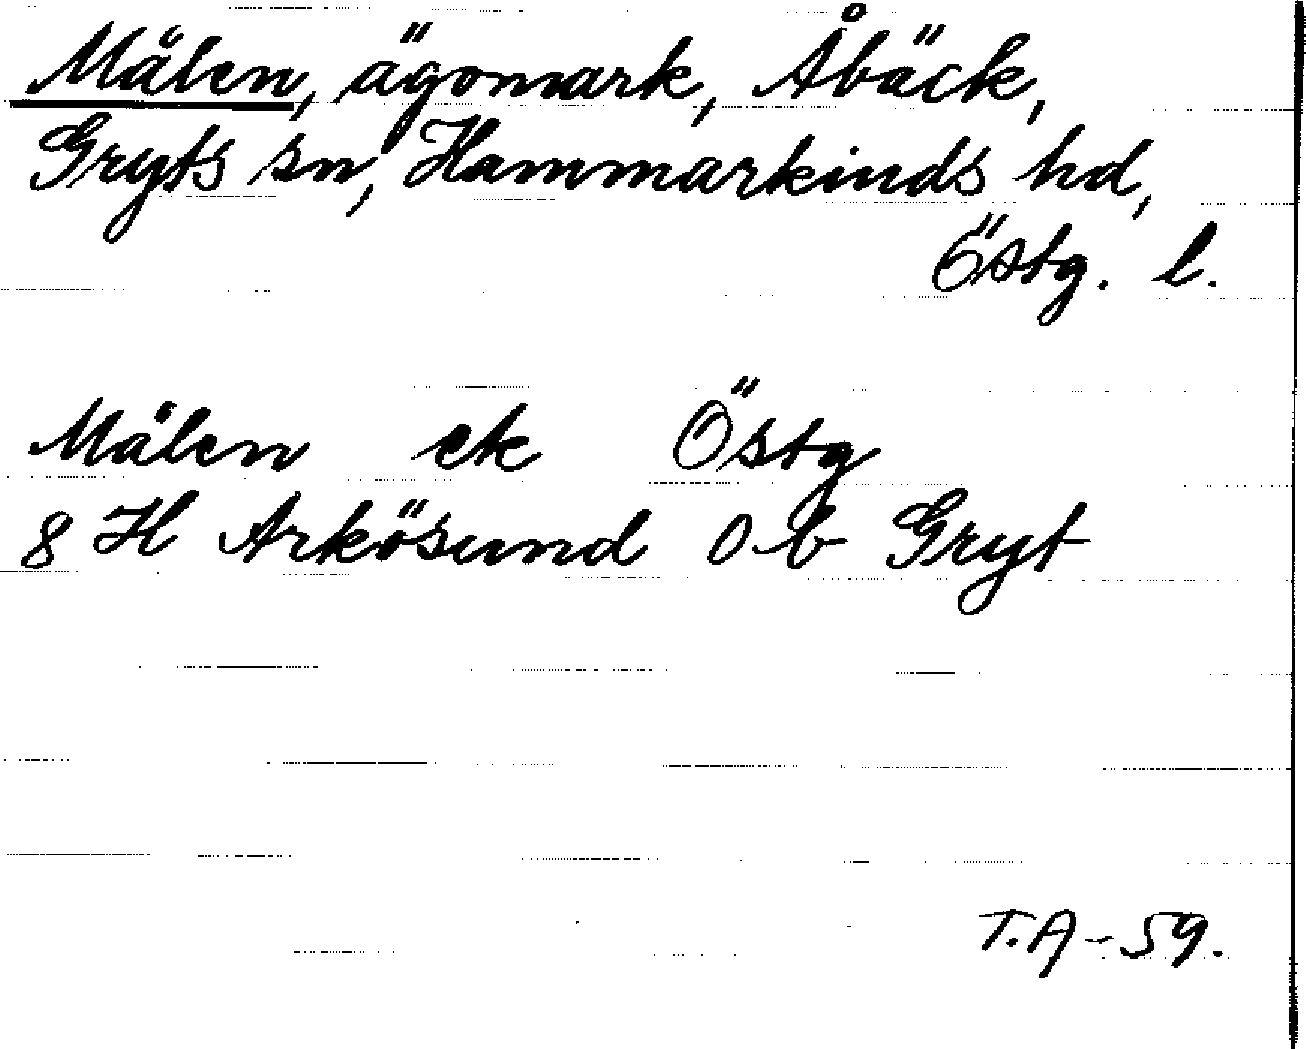 Målen, ägomark, Åbäck,
Gryts sn, Hammarkinds hd,
Östg. l.
Målen ek Östg
8 H Arkösund 0 b Gryt
T.A-59.